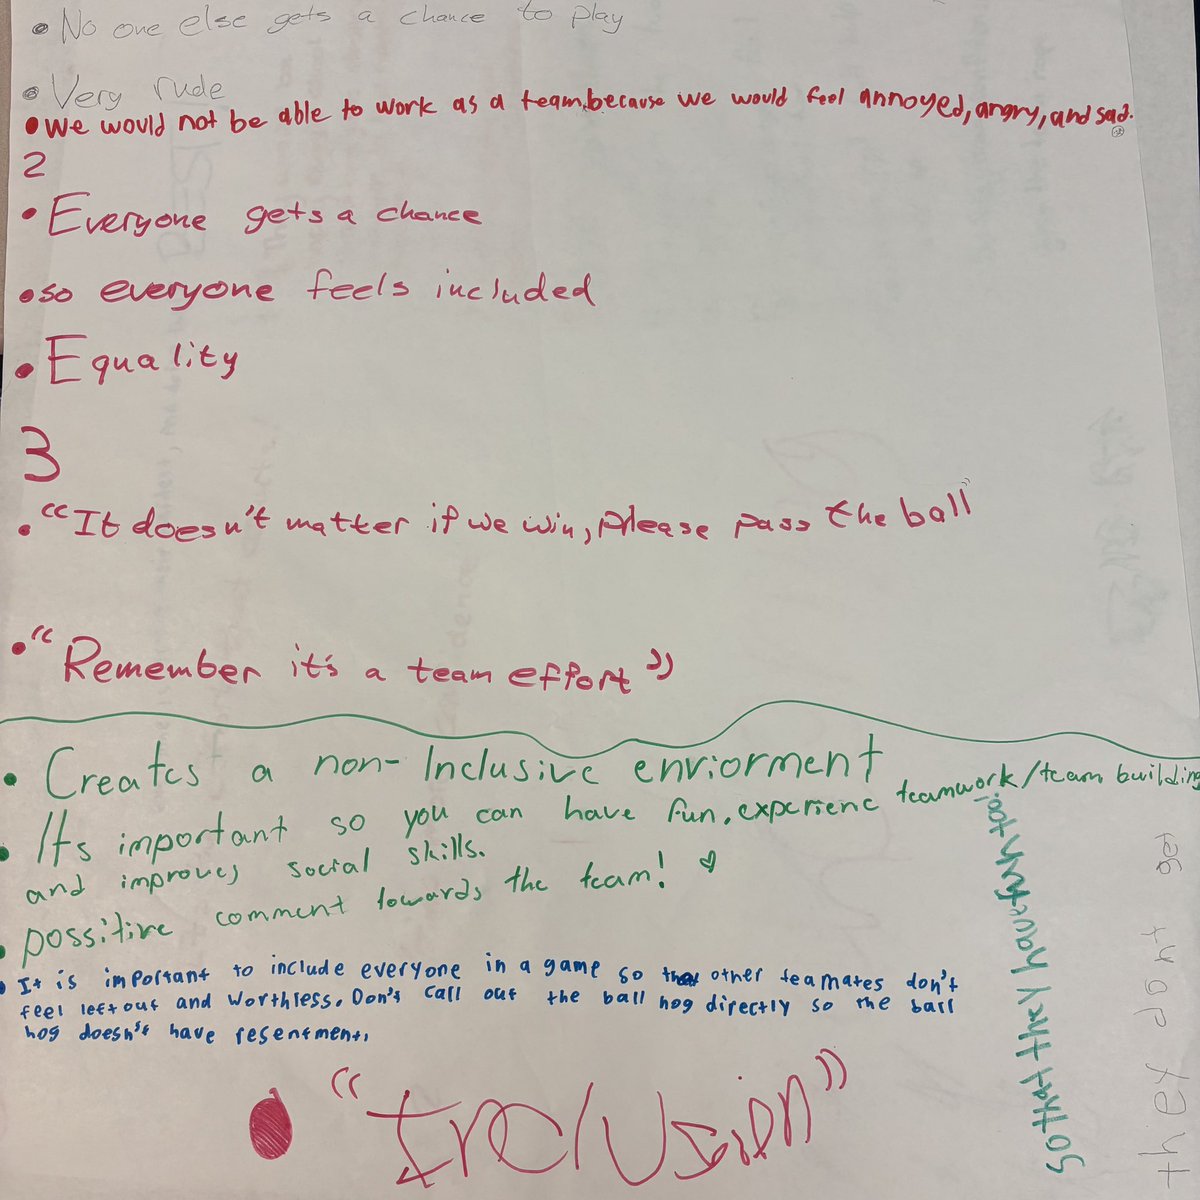 • No one else gets a chance to play
• Very rude
• We would not be able to work as a team, because we would feel annoyed, angry, and sad.
2
• Everyone gets a chance
• so everyone feels included
• Equality
3
• "It doesn't matter if we win, please pass the ball"
• "Remember it's a team effort"
• Creates a non-Inclusive enviorment
• Its important so you can have fun, experienc teamwork/team building
and improves social skills.
• possitive comment towards the team!
• It is important to include everyone in a game so that other teamates don't
feel left out and worthless. Don't call out the ball hog directly so the ball
hog doesn't have resentment.
• "Inclusion"
So that they have fun too!
they dont get